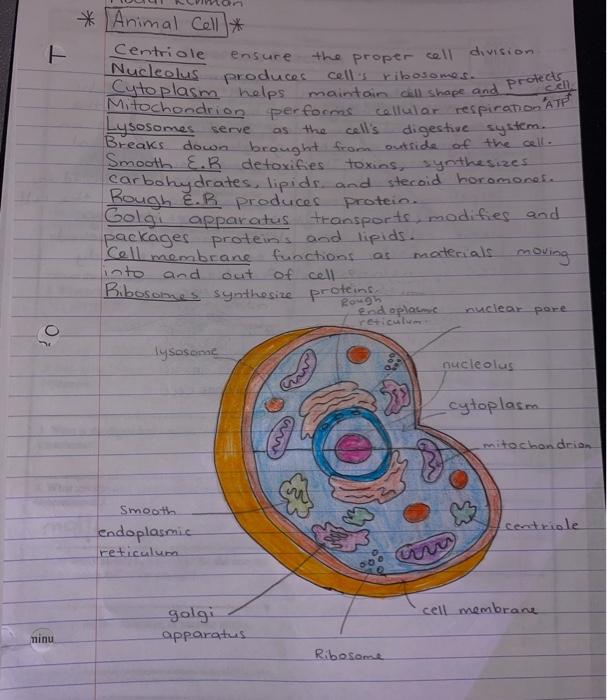 * Animal Cell *
Centriole ensure the proper cell division
Nucleolus produces cell's ribosomes.
Cytoplasm helps maintain cell shape and protects cell.
Mitochondrion performs cellular respiration "ATP"
Lysosomes serve as the cell's digestive system.
Breaks down brought from outside of the cell.
Smooth E.R detoxifies toxins, synthesizes
carbohydrates, lipids, and steroid horomones.
Rough E.R. produces protein.
Golgi apparatus transports, modifies and
packages protein's and lipids.
Cell membrane functions as materials moving
into and out of cell
Ribosomes synthesize proteins.
Rough
endoplasmic
reticulum
nuclear pore
lysosome
nucleolus
cytoplasm
mitochondrion
Smooth
endoplasmic
reticulum
centriole
golgi
apparatus
cell membrane
Ribosome
ninu